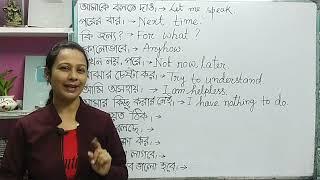 আমাকে বলতে দাও।→ Let me speak.
পরের বার।→ Next time.
কি জন্য?→ For what?
→ Anyhow.
নয়, পরে।→ Not now, later.
চেষ্টা কর।→ Try to understand.
আমি অসহায়।→ I am helpless.
আমার কিছু করার নেই।→ I have nothing to do.
ঠিক।→
→
কর।→
লাগবে।→
ভালো হবে।→